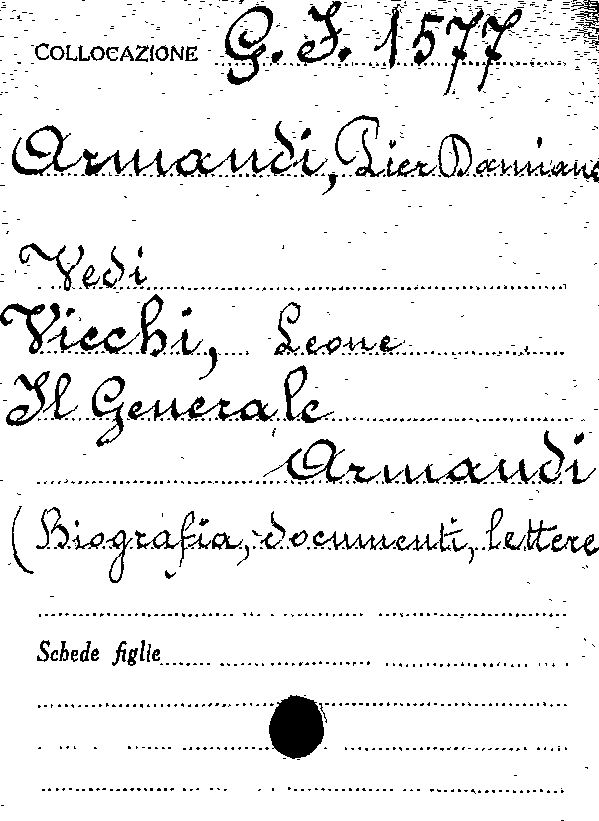 COLLOCAZIONE G. J. 1577
Armandi, Pier Damiano
Vedi
Vicchi, Leone
Il Generale
Armandi
(Biografia, documenti, lettere
Schede figlie